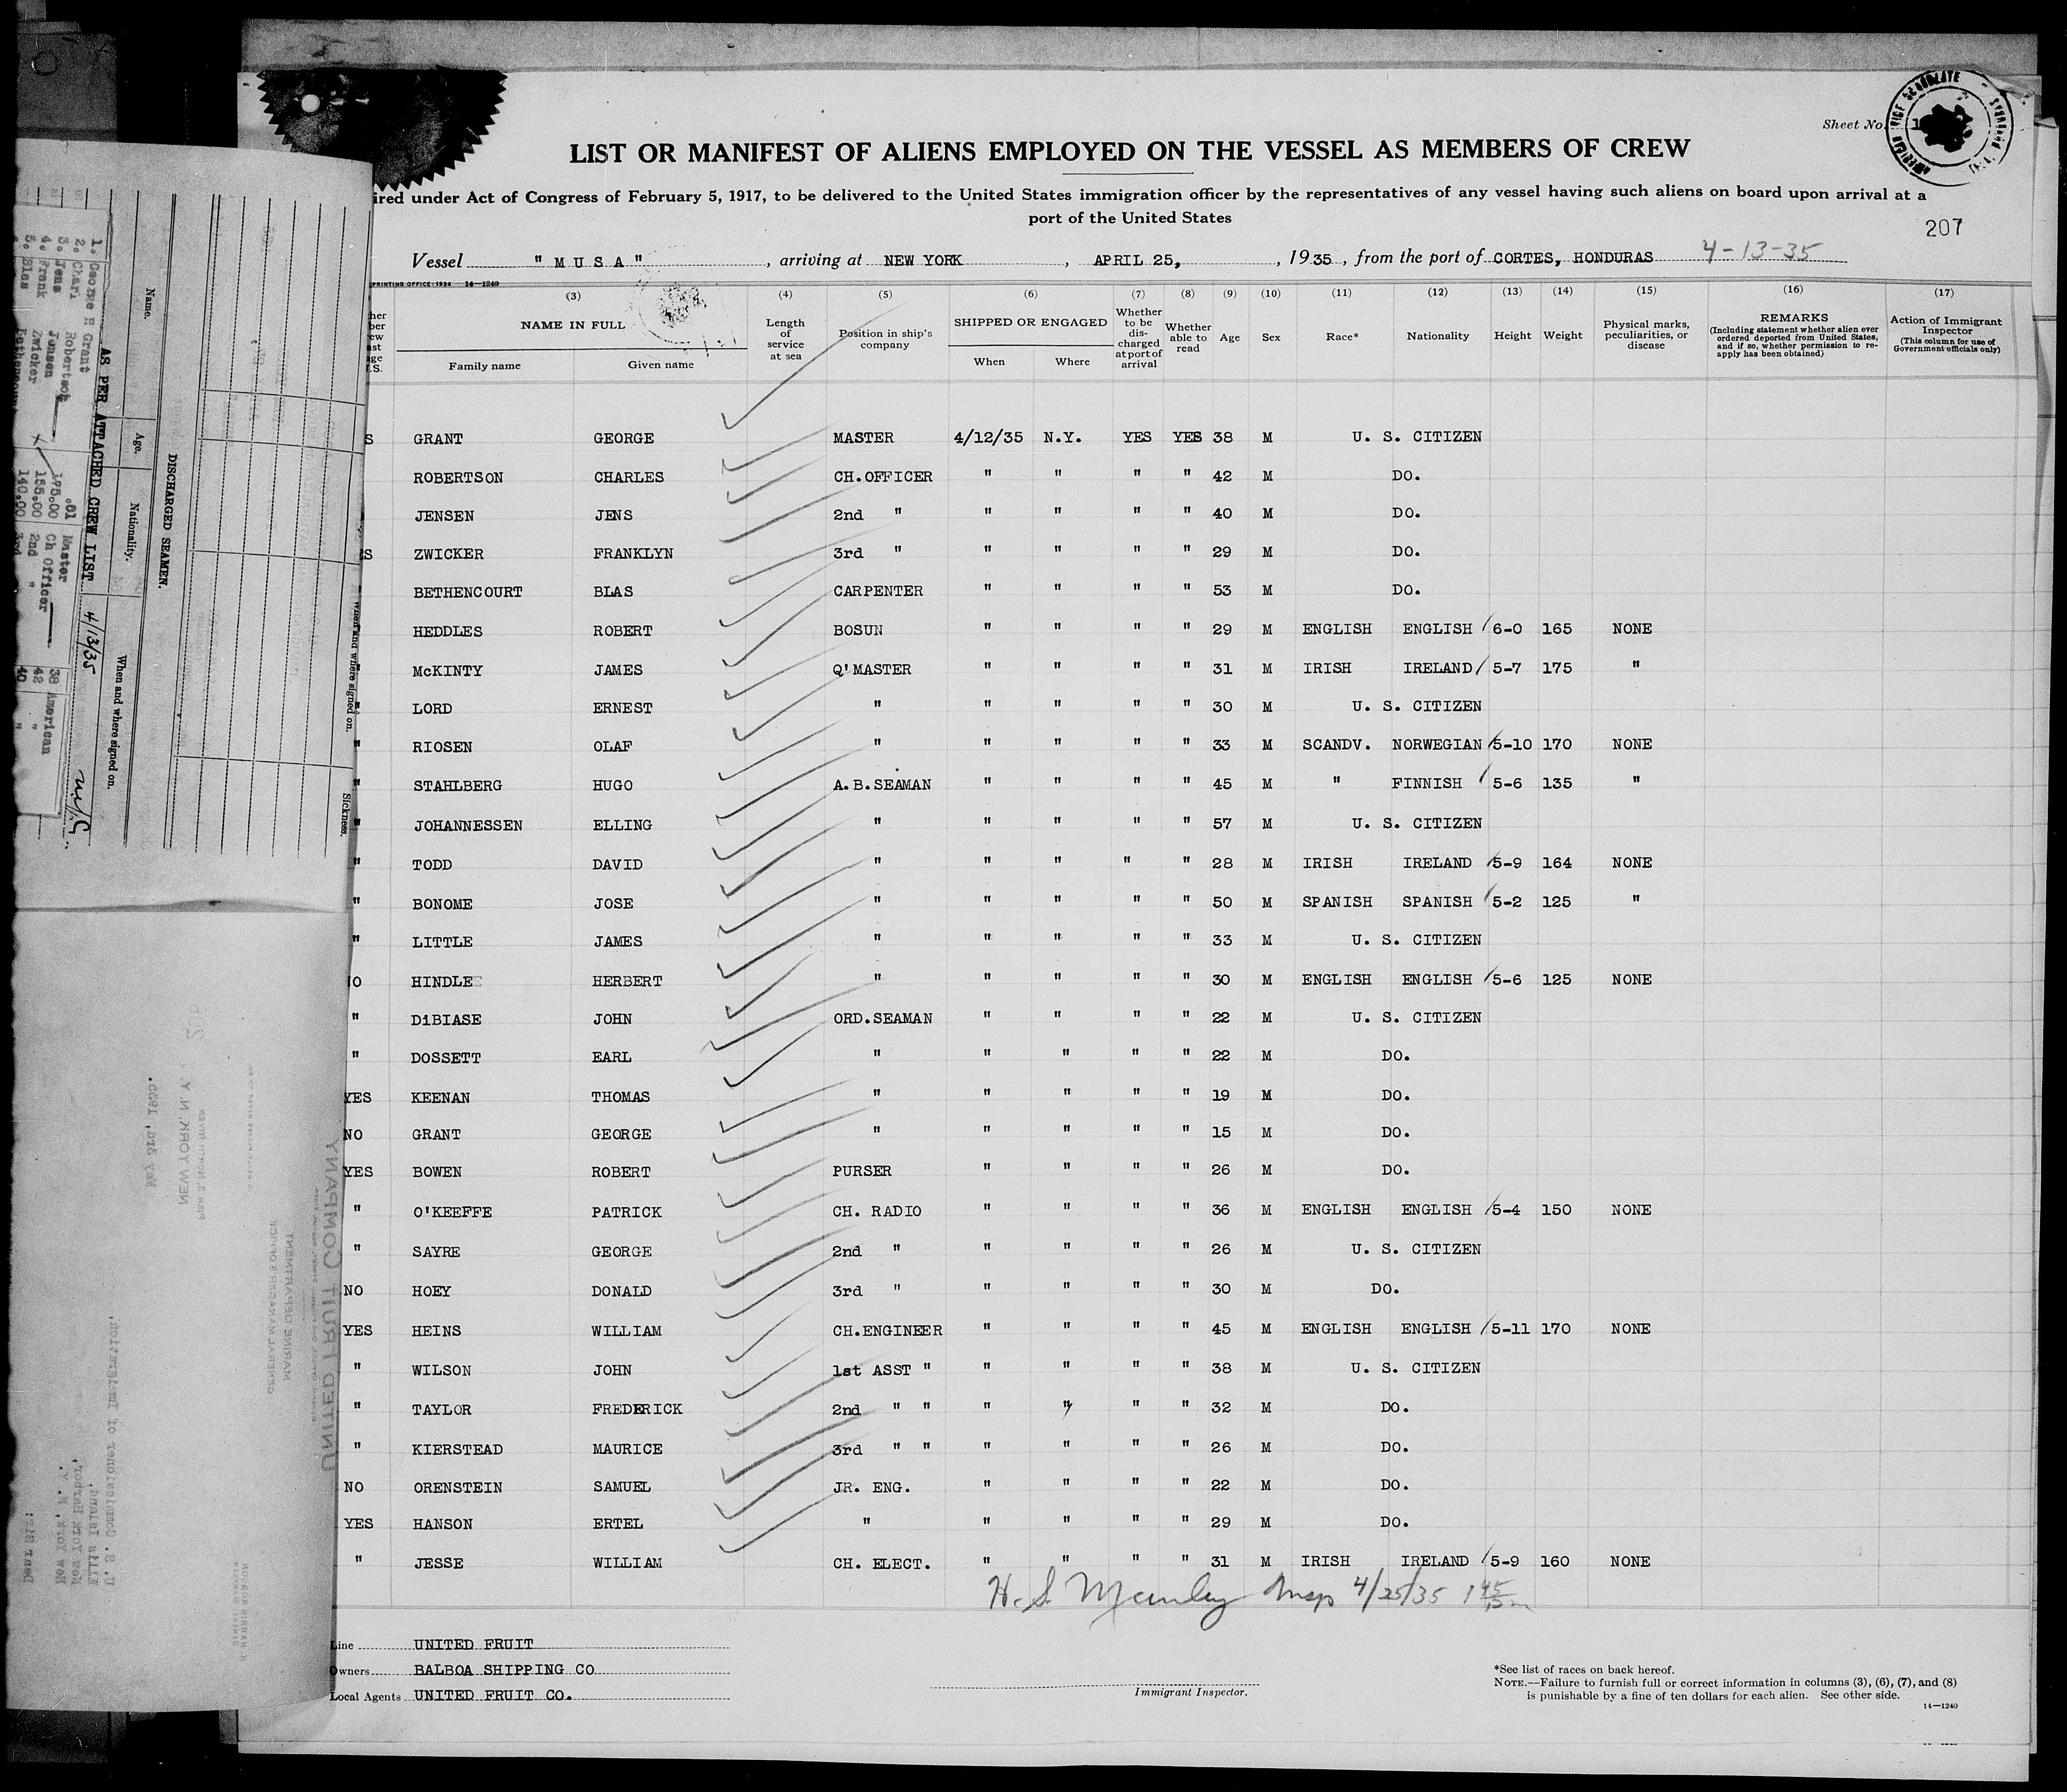 Sheet No. 1
AMERICAN VICE CONSULATE
LIST OR MANIFEST OF ALIENS EMPLOYED ON THE VESSEL AS MEMBERS OF CREW
ired under Act of Congress of February 5, 1917, to be delivered to the United States immigration officer by the representatives of any vessel having such aliens on board upon arrival at a
port of the United States
207
Vessel "MUSA", arriving at NEW YORK, APRIL 25, 1935, from the port of CORTES, HONDURAS 4-13-35
PRINTING OFFICE: 1934 14-1240
(3) (4) (5) (6) (7) (8) (9) (10) (11) (12) (13) (14) (15) (16) (17)
NAME IN FULL Length of service at sea Position in ship's company SHIPPED OR ENGAGED Whether to be discharged at port of arrival Whether able to read Age Sex Race* Nationality Height Weight Physical marks, peculiarities, or disease REMARKS (Including statement whether alien ever ordered deported from United States, and if so, whether permission to reapply has been obtained) Action of Immigrant Inspector (This column for use of Government officials only)
Family name Given name When Where
S GRANT GEORGE MASTER 4/12/35 N.Y. YES YES 38 M U. S. CITIZEN
ROBERTSON CHARLES CH.OFFICER " " " " 42 M DO.
JENSEN JENS 2nd " " " " " 40 M DO.
S ZWICKER FRANKLYN 3rd " " " " " 29 M DO.
BETHENCOURT BLAS CARPENTER " " " " 53 M DO.
HEDDLES ROBERT BOSUN " " " " 29 M ENGLISH ENGLISH 6-0 165 NONE
McKINTY JAMES Q'MASTER " " " " 31 M IRISH IRELAND 5-7 175 "
" LORD ERNEST " " " " " 30 M U. S. CITIZEN
" RIOSEN OLAF " " " " " 33 M SCANDV. NORWEGIAN 5-10 170 NONE
" STAHLBERG HUGO A.B.SEAMAN " " " " 45 M " FINNISH 5-6 135 "
" JOHANNESSEN ELLING " " " " " 57 M U. S. CITIZEN
" TODD DAVID " " " " " 28 M IRISH IRELAND 5-9 164 NONE
" BONOME JOSE " " " " " 50 M SPANISH SPANISH 5-2 125 "
" LITTLE JAMES " " " " " 33 M U. S. CITIZEN
NO HINDLE HERBERT " " " " " 30 M ENGLISH ENGLISH 5-6 125 NONE
" DiBIASE JOHN ORD.SEAMAN " " " " 22 M U. S. CITIZEN
" DOSSETT EARL " " " " " 22 M DO.
YES KEENAN THOMAS " " " " " 19 M DO.
NO GRANT GEORGE " " " " " 15 M DO.
YES BOWEN ROBERT PURSER " " " " 26 M DO.
" O'KEEFFE PATRICK CH. RADIO " " " " 36 M ENGLISH ENGLISH 5-4 150 NONE
" SAYRE GEORGE 2nd " " " " " 26 M U. S. CITIZEN
NO HOEY DONALD 3rd " " " " " 30 M DO.
YES HEINS WILLIAM CH.ENGINEER " " " " 45 M ENGLISH ENGLISH 5-11 170 NONE
" WILSON JOHN 1st ASST " " " " " 38 M U. S. CITIZEN
" TAYLOR FREDERICK 2nd " " " " " " 32 M DO.
" KIERSTEAD MAURICE 3rd " " " " " " 26 M DO.
NO ORENSTEIN SAMUEL JR. ENG. " " " " 22 M DO.
YES HANSON ERTEL " " " " " 29 M DO.
" JESSE WILLIAM CH. ELECT. " " " " 31 M IRISH IRELAND 5-9 160 NONE
H. S. Manley Insp 4/25/35 1 45 pm
Line UNITED FRUIT
Owners BALBOA SHIPPING CO
Local Agents UNITED FRUIT CO.
Immigrant Inspector.
*See list of races on back hereof.
NOTE.—Failure to furnish full or correct information in columns (3), (6), (7), and (8)
is punishable by a fine of ten dollars for each alien. See other side.
14—1240
When and where signed on.
Sickness.
DISCHARGED SEAMEN.
Name. Age. Nationality. When and where signed on.
AS PER ATTACHED CREW LIST 4/13/35
1. George Grant .81 Master 38 American
2. Robertson 175.00 Ch Officer 42 "
3. Jens Jensen 155.00 2nd " 40 "
4. Frank Zwicker 140.00 3rd
5. Blas Bethencourt
UNITED FRUIT COMPANY
MARINE DEPARTMENT
GENERAL MANAGER'S OFFICE
PIER 3, NORTH RIVER
NEW YORK, N. Y.
May 3rd, 1935.
U. S. Commissioner of Immigration,
Ellis Island,
New York Harbor,
New York, N. Y.
Dear Sir: